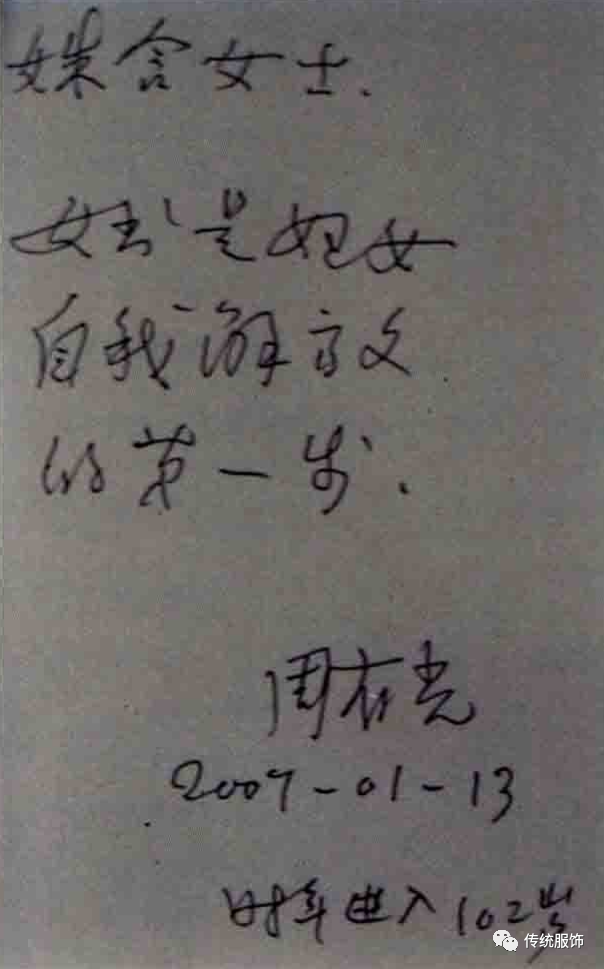 女士.
女书是妇女
自我解放
的第一步.
周有光
2007-01-13
时年进入102岁
传统服饰